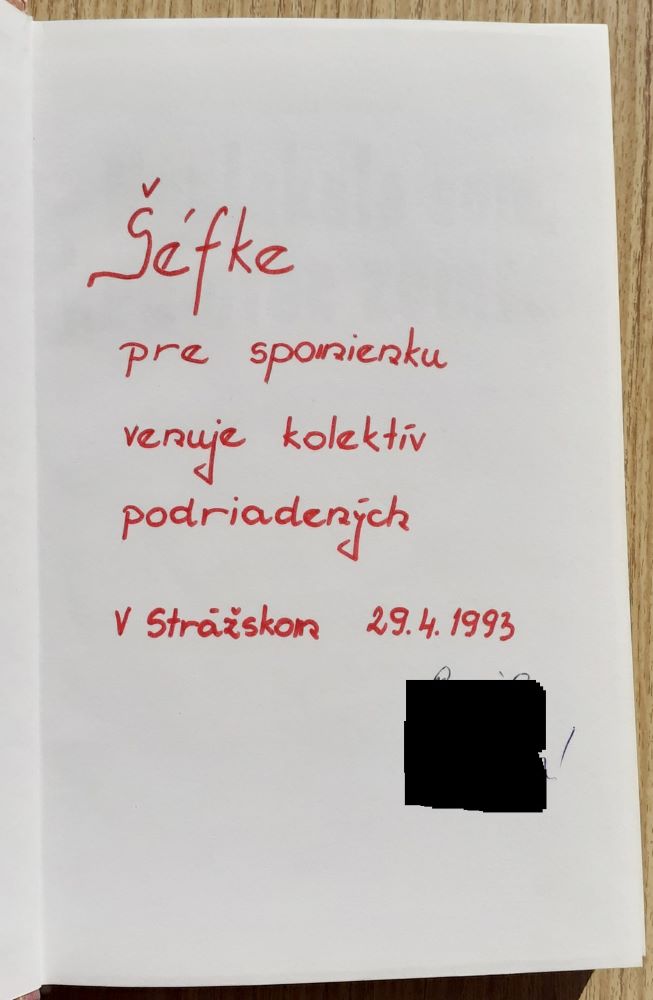 Šéfke
pre spomienku
venuje kolektív
podriadených
V Strážskom 29.4.1993